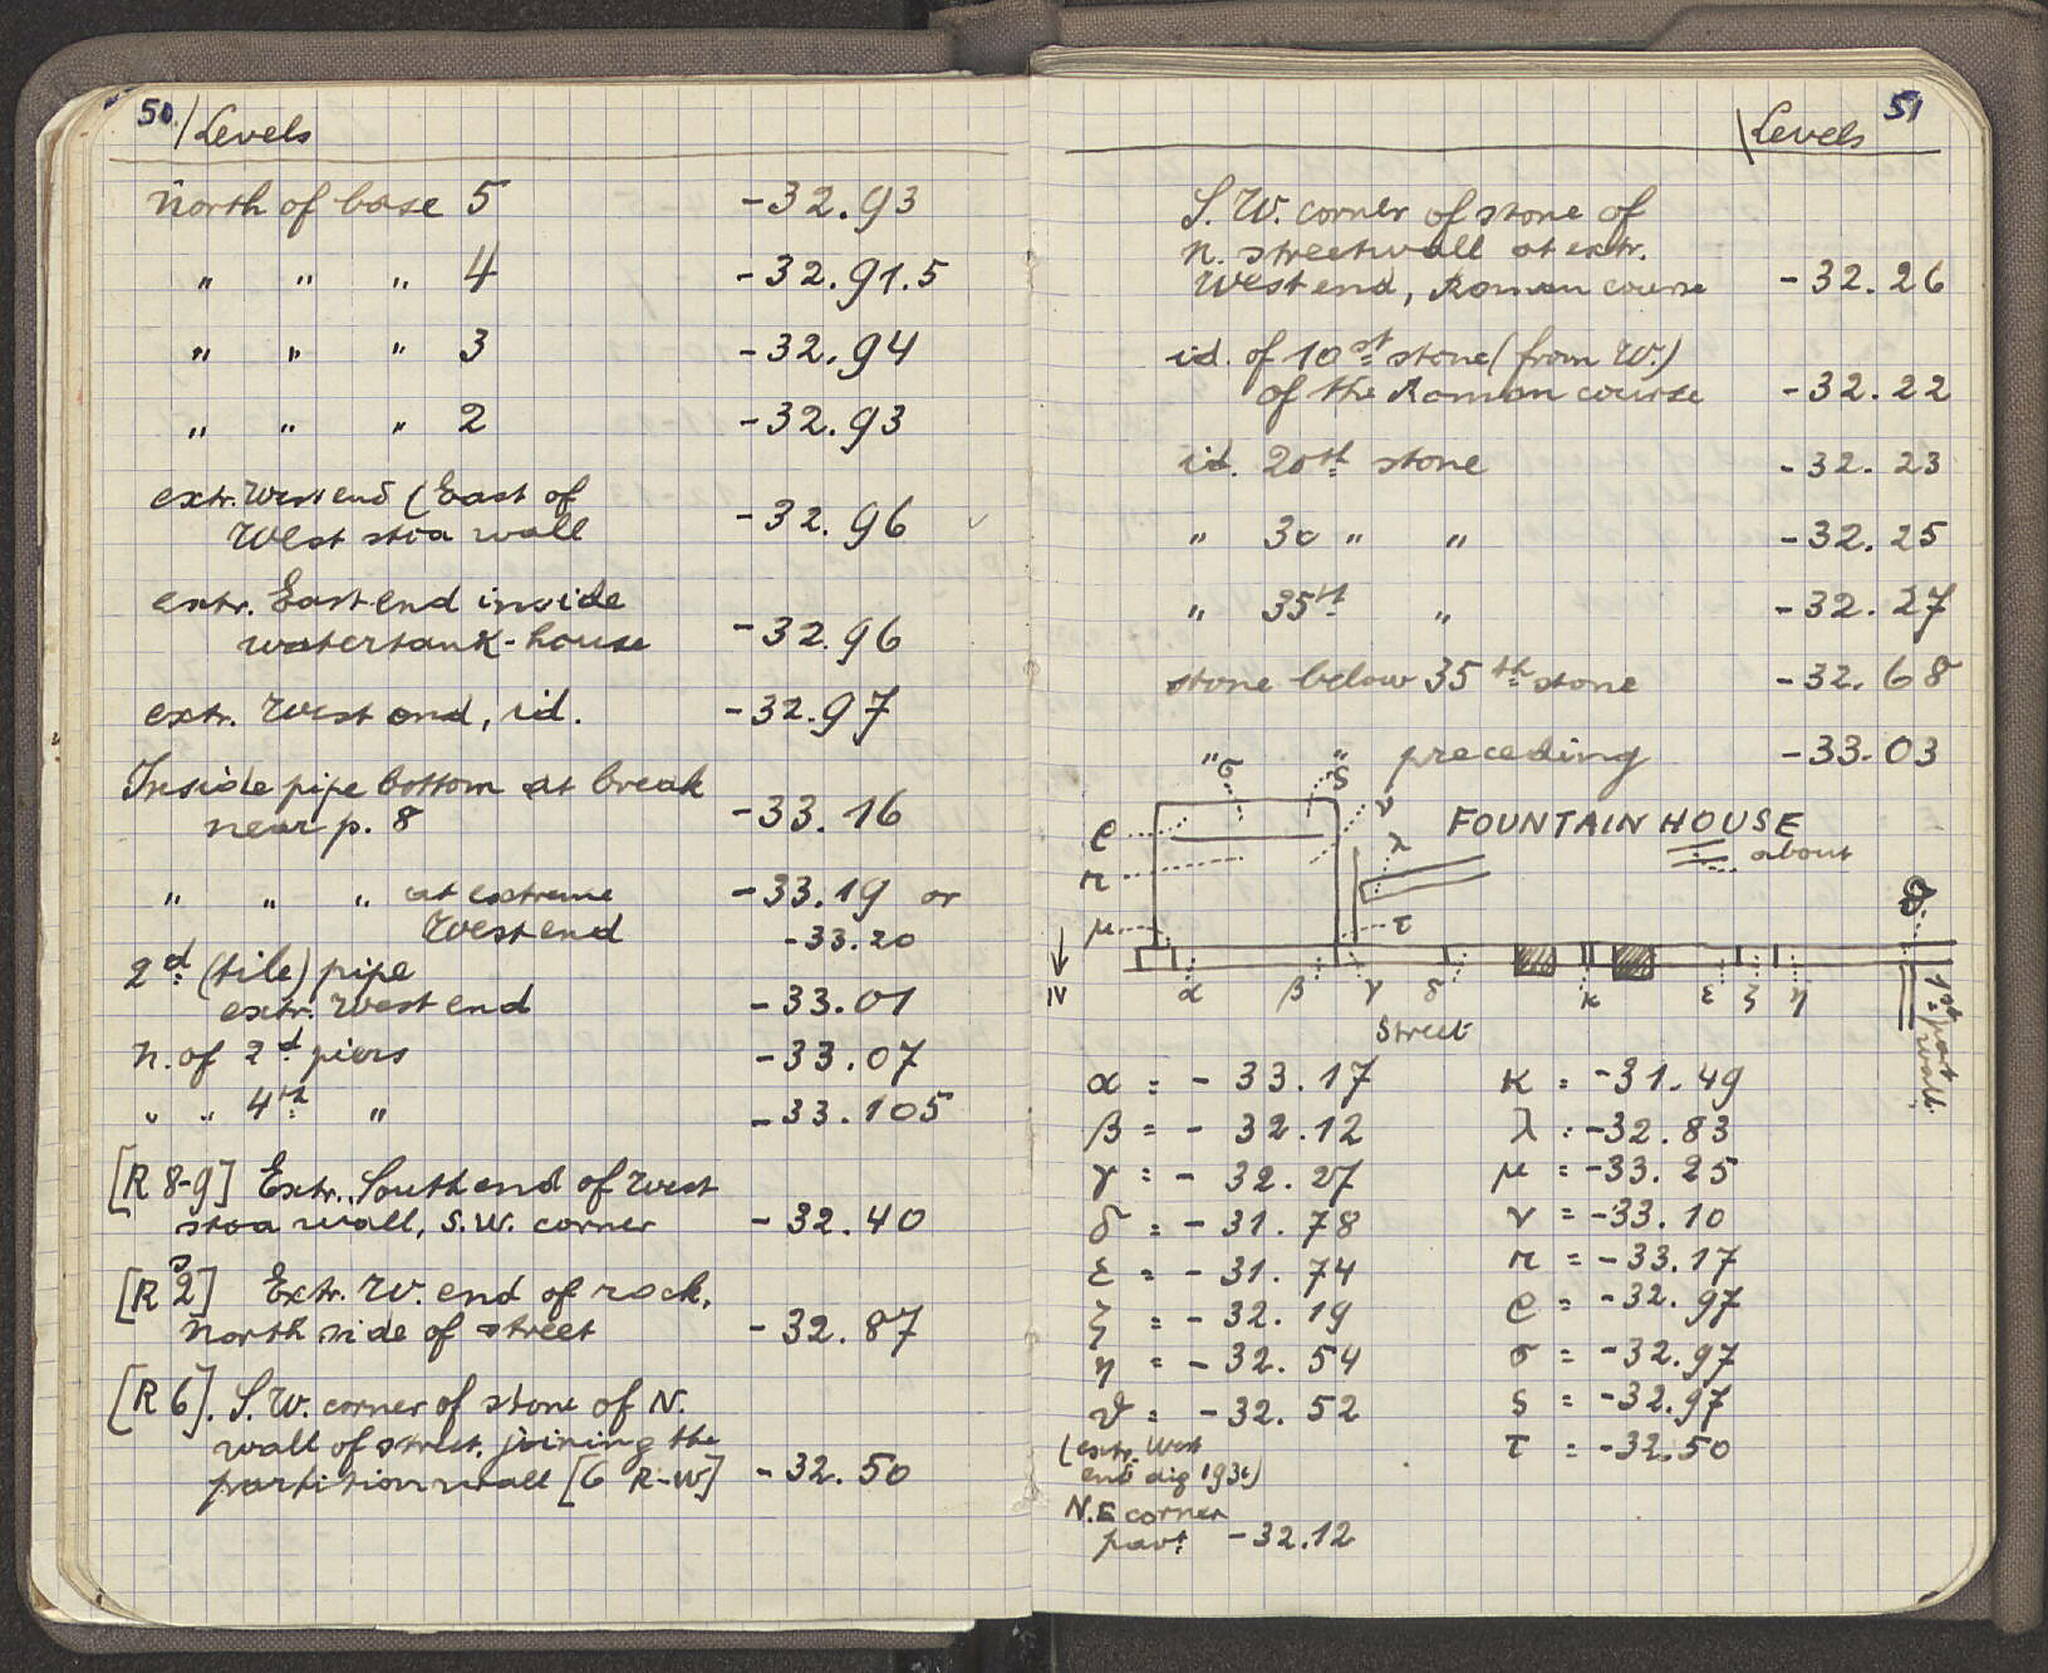 50. / Levels
North of base 5 -32.93
" " " 4 -32.91.5
" " " 3 -32.94
" " " 2 -32.93
extr. West end (East of
West stoa wall -32.96
extr. East end inside
watertank-house -32.96
extr. West end, id. -32.97
Inside pipe bottom at break
near p. 8 -33.16
" " " at extreme -33.19 or
West end -33.20
2d (tile) pipe
extr. West end -33.01
N. of 2d piers -33.07
" " 4th " -33.105
[R 8-9] Extr. South end of West
stoa wall, S.W. corner -32.40
[R 2] Extr. W. end of rock,
North side of street -32.87
[R 6]. S.W. corner of stone of N.
wall of street, joining the
partition wall [6 R-W] -32.50
\Levels 51
S.W. corner of stone of
N. streetwall at extr.
West end, Roman course -32.26
id. of 10st stone (from W.)
of the Roman course -32.22
id. 20th stone -32.23
" 30 " " -32.25
" 35th " -32.27
stone below 35th stone -32.68
" " preceding -33.03
σ ς
ν
ρ FOUNTAIN HOUSE
λ about
π
ϑ
μ τ
IV α β γ δ κ ε ζ η
1st part wall.
Street
α = - 33.17 κ = -31.49
β = - 32.12 λ = -32.83
γ = - 32.27 μ = -33.25
δ = - 31.78 ν = -33.10
ε = - 31.74 π = -33.17
ζ = - 32.19 ρ = -32.97
η = - 32.54 σ = -32.97
ϑ = - 32.52 ς = -32.97
(extr. West τ = -32.50
end dig 193)
N.E corner
pavt -32.12